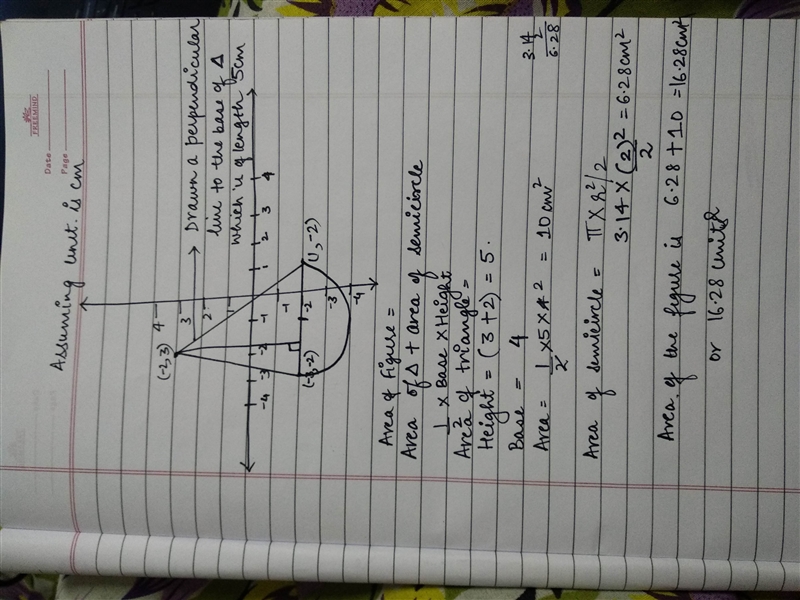 FREEMIND
Date
Page
Assuming unit. is cm
→ Drawn a perpendicular
line to the base of Δ
which is of length 5cm
(-2, 3)
4
3
2
1
-4 -3 -2 -1 1 2 3 4
-1
-2
-3
-4
(-3,-2)
(1,-2)
Area of Figure =
Area of Δ + area of semicircle
1/2 × Base × Height
Area of triangle =
Height = (3+2) = 5.
Base = 4
Area = 1/2 × 5 × 4 2 = 10 cm²
3.14
2
6.28
Area of semicircle = π × r²/2
3.14 × (2)²/2 = 6.28 cm²
Area of the figure is 6.28 + 10 = 16.28 cm²
or 16.28 units²